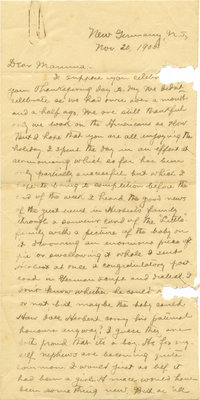 New Germany, N.S.
Nov. 20, 190
Dear Mamma:
I suppose you celebr
your Thanksgiving day to-day. We didn't
celebrate as we had ours over a month
and a half ago. We are still thankful
we don't the Americans as slow
But I hope that you are all enjoying the
holiday. I spend the day in an effort at
which so far has been
only partially successful but which I
to bring to completion before the
end of the week. I heard the good news
of the great event in Herbert's family
through a souvenir card of the "Little"
family with a picture of the baby on
it devouring an enormous piece of
pie or swallowing it whole. I sent
Herbert at once a congratulatory post
card in German script and I
don't know whether he could
or not but maybe the baby could.
How does Herbert carry his paternal
honours anyway? I guess they are
both proud that it's a boy. As for my
self nephews are becoming quite
common. I would just as lief it
had been a girl. A niece would have
been something new. But as all